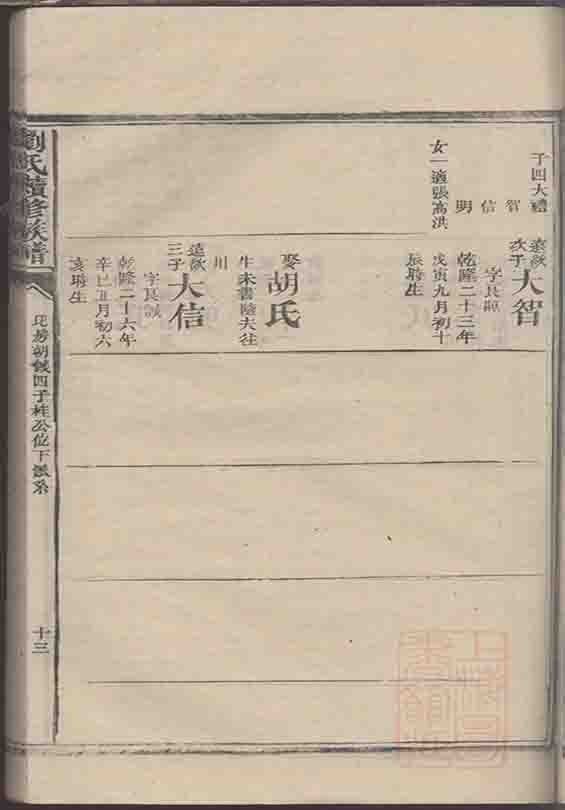 子四大禮
智
信
明
女一適張高洪
遠猷
次子
大智
字良源
乾隆二十三年
戊寅九月初十
辰時生
娶
胡氏
生未書隨夫往
川
遠猷
三子
大信
字良誠
乾隆二十六年
辛巳五月初六
亥時生
劉氏續修族譜
房朝鉞四子桂公位下派系
十三
上海圖書館藏